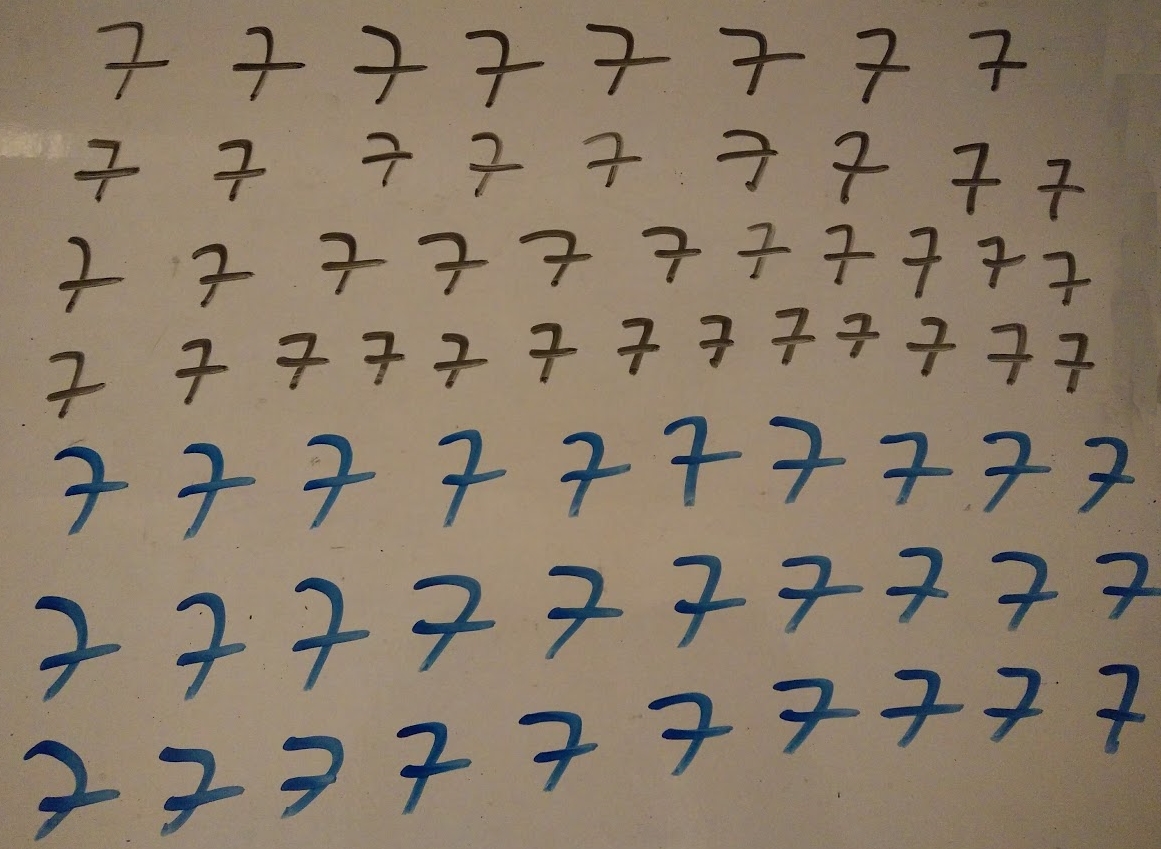 7 7 7 7 7 7 7 7
7 7 7 7 7 7 7 7 7
7 7 7 7 7 7 7 7 7 7 7
7 7 7 7 7 7 7 7 7 7 7 7 7
7 7 7 7 7 7 7 7 7 7
7 7 7 7 7 7 7 7 7 7
7 7 7 7 7 7 7 7 7 7